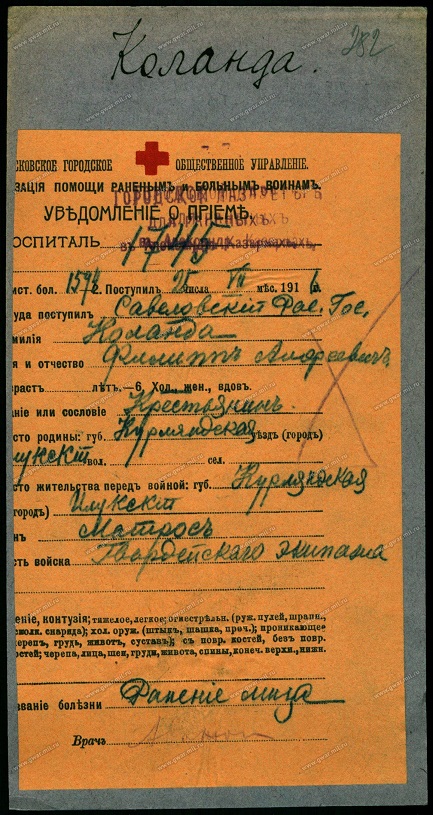 282
Коланда.
СКОВСКОЕ ГОРОДСКОЕ ОБЩЕСТВЕННОЕ УПРАВЛЕНІЕ.
ЗАЦІЯ ПОМОЩИ РАНЕНЫМЪ и БОЛЬНЫМЪ ВОИНАМЪ.
ГОРОДСКОЙ ЛАЗАРЕТЪ
УВѢДОМЛЕНІЕ О ПРІЕМѢ.
ОСПИТАЛЬ 1715
ист. бол. 1574 2. Поступил 25 числа VII мѣс. 1916 г.
уда поступил Савеловскій Рас. Гос.
милія Коланда
я и отчество Филиппъ Андреевичъ
раст лѣт.—6, Хол., жен., вдов.
ніе или сословіе Крестьянинъ
сто родины: губ. Курляндская уѣзд (городъ)
лукскт вол. сел.
то жительства перед войной: губ. Курляндская
город) Илукскт
н Матросъ
сть войска Гвардейскаго экипажа
еніе, контузія; тяжелое, легкое; огнестрѣльн. (руж. пулей, шрапн.,
осколк. снаряда); хол. оруж. (штык, шашка, проч.); проникающее
череп, грудь, живот, сустав.); съ повр. костей, без повр.
остей; черепа, лица, шеи, груди, живота, спины, конеч. верхн., нижн.
звание болѣзни Раненіе лица
Врач